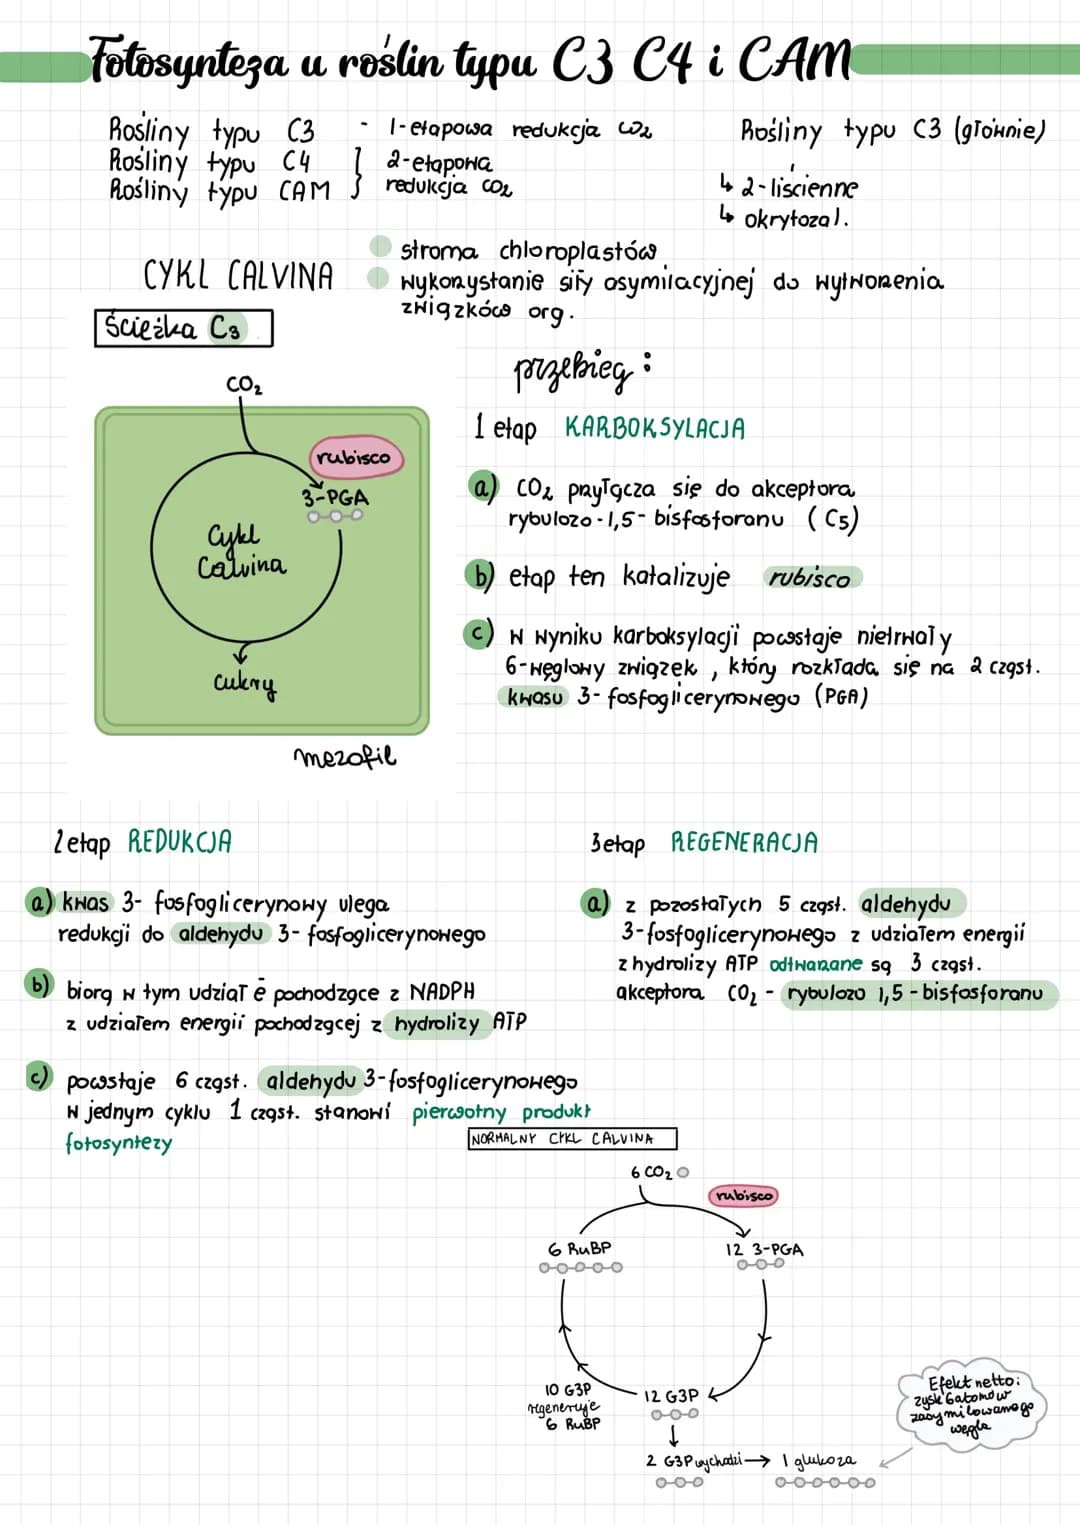 Fotosynteza u roślin typu C3 C4 i CAM
Rośliny typu C3 - 1-etapowa redukcja CO2
Rośliny typu C4 } 2-etapowa
Rośliny typu CAM redukcja CO2
Rośliny typu C3 (głównie)
↳ 2-liścienne
↳ okrytozal.
CYKL CALVINA
stroma chloroplastów
wykorzystanie siły asymilacyjnej do wytworzenia
związków org.
Ścieżka C3
CO2
rubisco
3-PGA
Cykl
Calvina
cukry
mezofil
przebieg:
1 etap KARBOKSYLACJA
a) CO2 przyłącza się do akceptora
rybulozo-1,5-bisfosforanu (C5)
b) etap ten katalizuje rubisco
c) w wyniku karboksylacji powstaje nietrwały
6-węglowy związek, który rozkłada się na 2 cząst.
kwasu 3-fosfoglicerynowego (PGA)
2 etap REDUKCJA
a) kwas 3-fosfoglicerynowy ulega
redukcji do aldehydu 3-fosfoglicerynowego
b) biorą w tym udział ē pochodzące z NADPH
z udziałem energii pochodzącej z hydrolizy ATP
c) powstaje 6 cząst. aldehydu 3-fosfoglicerynowego
w jednym cyklu 1 cząst. stanowi pierwotny produkt
fotosyntezy
3 etap REGENERACJA
a) z pozostałych 5 cząst. aldehydu
3-fosfoglicerynowego z udziałem energii
z hydrolizy ATP odtwarzane są 3 cząst.
akceptora CO2 - rybulozo 1,5-bisfosforanu
NORMALNY CYKL CALVINA
6 CO2
rubisco
6 RuBP
12 3-PGA
10 G3P
regeneruje
6 RuBP
12 G3P
2 G3P wychodzi → 1 glukoza
Efekt netto:
zysk 6 atomów
zasymilowanego
węgla